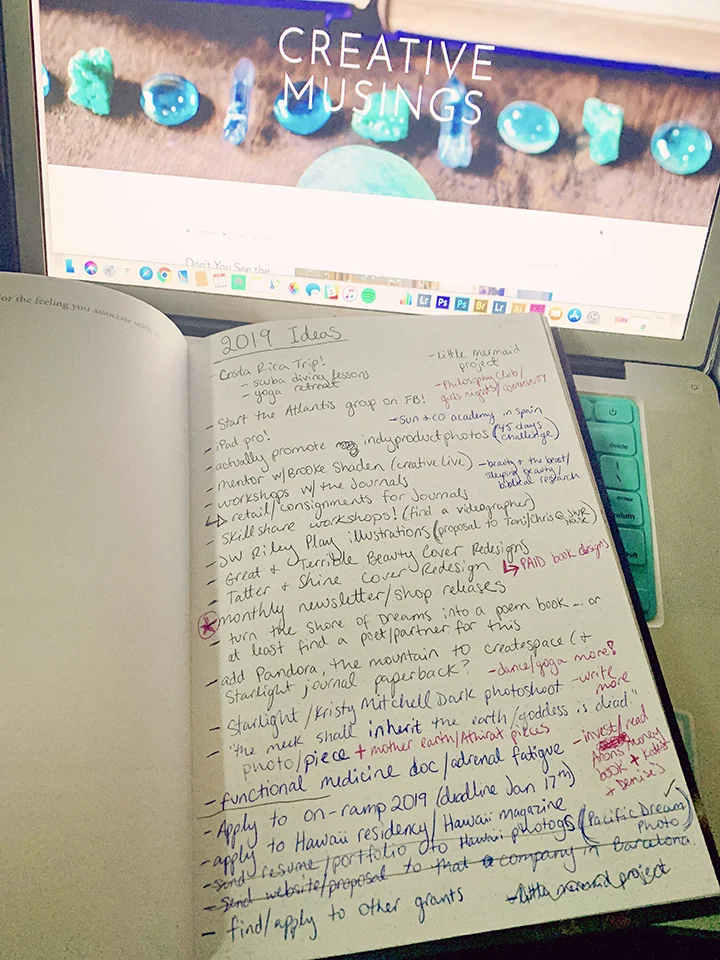 CREATIVE
MUSINGS
Don't You See the
Lr Ps Ps Br Lr Ai
for the feeling you associate with
delete
enter
return
shift
2019 Ideas
- Costa Rica Trip!
- scuba diving lessons
- yoga retreat
- little mermaid
project
- Philosophy Club/
girls nights/community
- Start the Atlantis group on FB!
- Sun + co academy in Spain
- iPad pro!
- actually promote indyproductphotos (45 days
challenge)
- mentor w/Brooke Shaden (creative live)
- beauty + the beast/
sleeping beauty/
biblical research
- workshops w/the Journals
↳ retail/consignments for Journals
- Skillshare workshops! (find a videographer)
- JW Riley Play illustrations (proposal to Toni/Chris @ JWR
House)
- Great + Terrible Beauty Cover Redesigns
- Tatter + Shine Cover Redesign ↳ PAID book designs
- monthly newsletter/shop releases
- turn the Shore of Dreams into a poem book ... or
at least find a poet/partner for this
- add Pandora, the mountain to createspace (+
Starlight journal paperback?
- dance/yoga more!
- Starlight/Kristy Mitchell Dark photoshoot
- write
more
- "the meek shall inherit the earth/goddess is dead"
photo/piece + mother earth/Athirat pieces
- invest/read
money
book + Katie
+ Denise's
- functional medicine doc/adrenal fatigue
- Apply to on-ramp 2019 (deadline Jan 17th)
- apply to Hawaii residency/Hawaii magazine
- send resume/portfolio to Hawaii photogs (Pacific Dream
Photo) ✓
- send website/proposal to that company in Barcelona
- find/apply to other grants
- little mermaid project